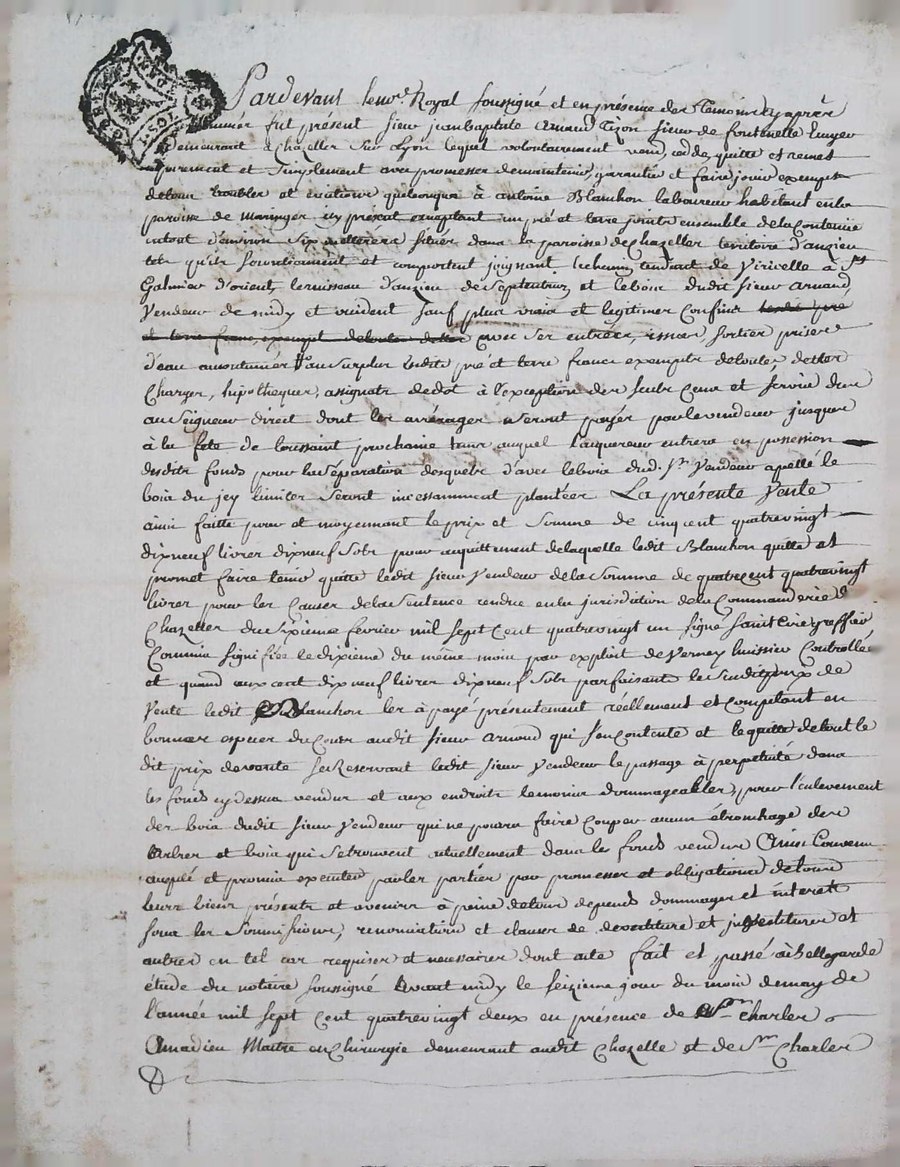 Pardevant le no.re Royal soussigné et en présence des Temoins cy après
nommés fut présent sieur jean baptiste Arnaud Tizon sieur de fontenelle
demeurant à Chazelles sur Lyon lequel volontairement vend, cede, quitte et remet
purement et simplement avec promesses de maintenir, garantir et faire jouir exempt
de tous troubles et evictions quelconques à antoine Blanchon laboureur habitant en la
paroisse de maringes cy présent acceptant un pré et terre joints ensemble de la Contenue
en tout d'environ six metterées situés dans la paroisse de chazelles territoire d'anzieu
tels qu'ils se confinent et comportent joignant le chemin tendant de Viricelle à St
Galmier d'orient, le ruisseau d'anzieu de septentrion, et le bois dudit sieur arnaud
Vendeur de midy et occident sauf plus vrais et legitimes Confins lesdits pré
et terre francs, exempts de toutes dettes avec ses entrées, issues, sorties prises
d'eau accoutumées au surplus lesdits pré et terre francs exempts de toutes dettes
Charges, hipotheques, assignats de dot à l'exception des seuls Cens et servis dus
au seigneur direct dont les arrérages seront payés par le vendeur jusques
à la fête de toussaint prochaine tems auquel l'acquereur entrera en possession
desdits fonds pour la séparation desquels d'avec le bois dud. Sr Vendeur apellé le
bois du jey limites seront incessamment plantées La présente Vente
ainsi faitte pour et moyennant le prix et somme de cinq cent quatrevingt
dix neuf livres dix neuf sols pour acquittement de laquelle ledit Blanchon quitte et
promet faire tenir quitte ledit sieur Vendeur de la somme de quatre cent quatrevingt
livres pour les Causes de la sentence rendue en la jurisdiction de la Commanderie de
Chazelles du sixieme fevrier mil sept Cent quatrevingt un signé saint Cire greffier
Commis signifiée le dixieme du même mois par exploit de Verney huissier Controllé
et quand aux cent dix neuf livres dix neuf sols parfaisants le susdit prix de
Vente ledit Blanchon les a payé présentement réellement et comptant en
bonnes especes du Cours audit sieur Arnaud qui s'en contente et le quitte de tout le
dit prix de vente se Reservant ledit sieur Vendeur le passage à perpétuité dans
les fonds cy dessus vendus et aux endroits le moins dommageables, pour l'enlevement
des bois dudit sieur Vendeur qui ne pourra faire Couper aucun ébranchage des
Arbres et bois qui se trouvent actuellement dans les fonds vendus Ainsi Convenu
accepté et promis executer par les parties par promesses et obligations de tous
leurs biens présents et avenirs à peine de tous depends dommages et interets
sous les soumissions, renonciations et clauses de devetiture et investitures et
autres en tel cas requises et necessaires dont acte fait et passé à bellegarde
étude du notaire soussigné Avant midy le seizieme jour du mois de may de
l'année mil sept Cent quatrevingt deux en présence de Sr Charles
Amadieu Maitre en Chirurgie demeurant audit Chazelle et de Sr Charles